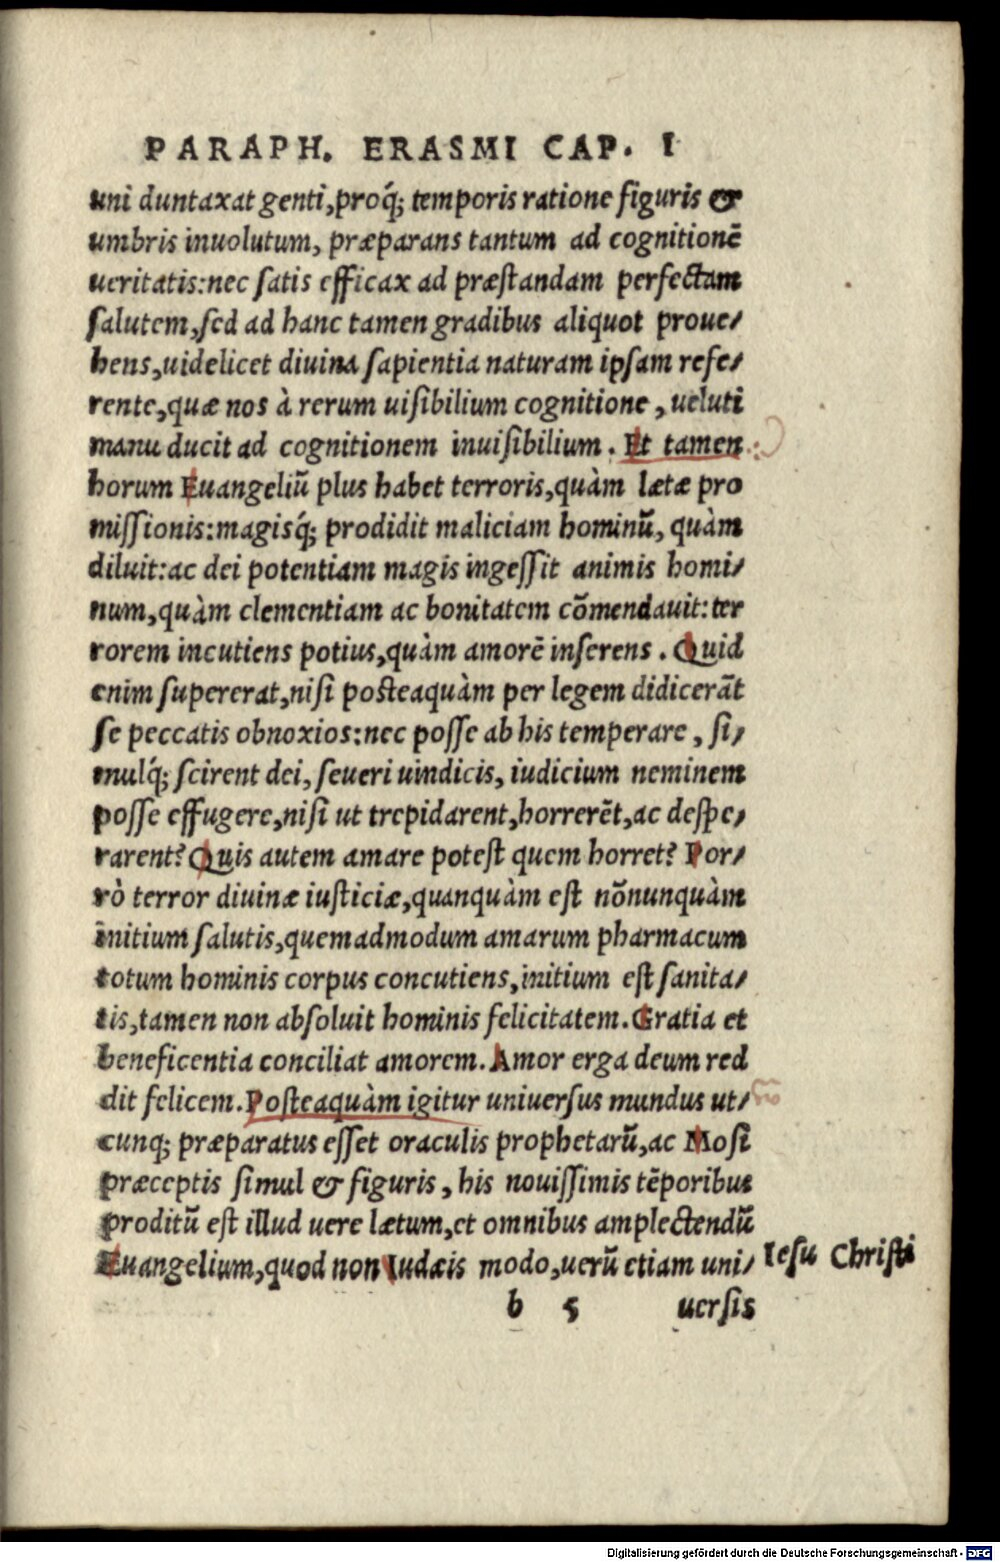 PARAPH. ERASMI CAP. I
uni duntaxat genti, proq́; temporis ratione figuris &
umbris inuolutum, præparans tantum ad cognitionẽ
ueritatis: nec ſatis efficax ad præſtandam perfectam
ſalutem, ſed ad hanc tamen gradibus aliquot proue/
hens, uidelicet diuina ſapientia naturam ipſam refe/
rente, quæ nos à rerum uiſibilium cognitione, ueluti
manu ducit ad cognitionem inuiſibilium. Et tamen
horum Euangeliũ plus habet terroris, quàm lætæ pro
miſſionis: magisq́; prodidit maliciam hominũ, quàm
diluit: ac dei potentiam magis ingeſſit animis homi/
num, quàm clementiam ac bonitatem cõmendauit: ter
rorem incutiens potius, quàm amorẽ inſerens. Quid
enim ſupererat, niſi poſteaquàm per legem didicerãt
ſe peccatis obnoxios: nec poſſe ab his temperare, ſi/
mulq́; ſcirent dei, ſeueri uindicis, iudicium neminem
poſſe effugere, niſi ut trepidarent, horrerẽt, ac deſpe/
rarent? Quis autem amare poteſt quem horret? Por/
rò terror diuinæ iuſticiæ, quanquàm eſt nõnunquàm
initium ſalutis, quemadmodum amarum pharmacum
totum hominis corpus concutiens, initium eſt ſanita/
tis, tamen non abſoluit hominis felicitatem. Gratia et
beneficentia conciliat amorem. Amor erga deum red
dit felicem. Poſteaquàm igitur uniuerſus mundus ut/
cunq; præparatus eſſet oraculis prophetarũ, ac Moſi
præceptis ſimul & figuris, his nouiſſimis tẽporibus
proditũ eſt illud uere lætum, et omnibus amplectendũ
Euangelium, quod non Iudæis modo, uerũ etiam uni/ Ieſu Chriſti
b 5 uerſis
Digitalisierung gefördert durch die Deutsche Forschungsgemeinschaft - DFG